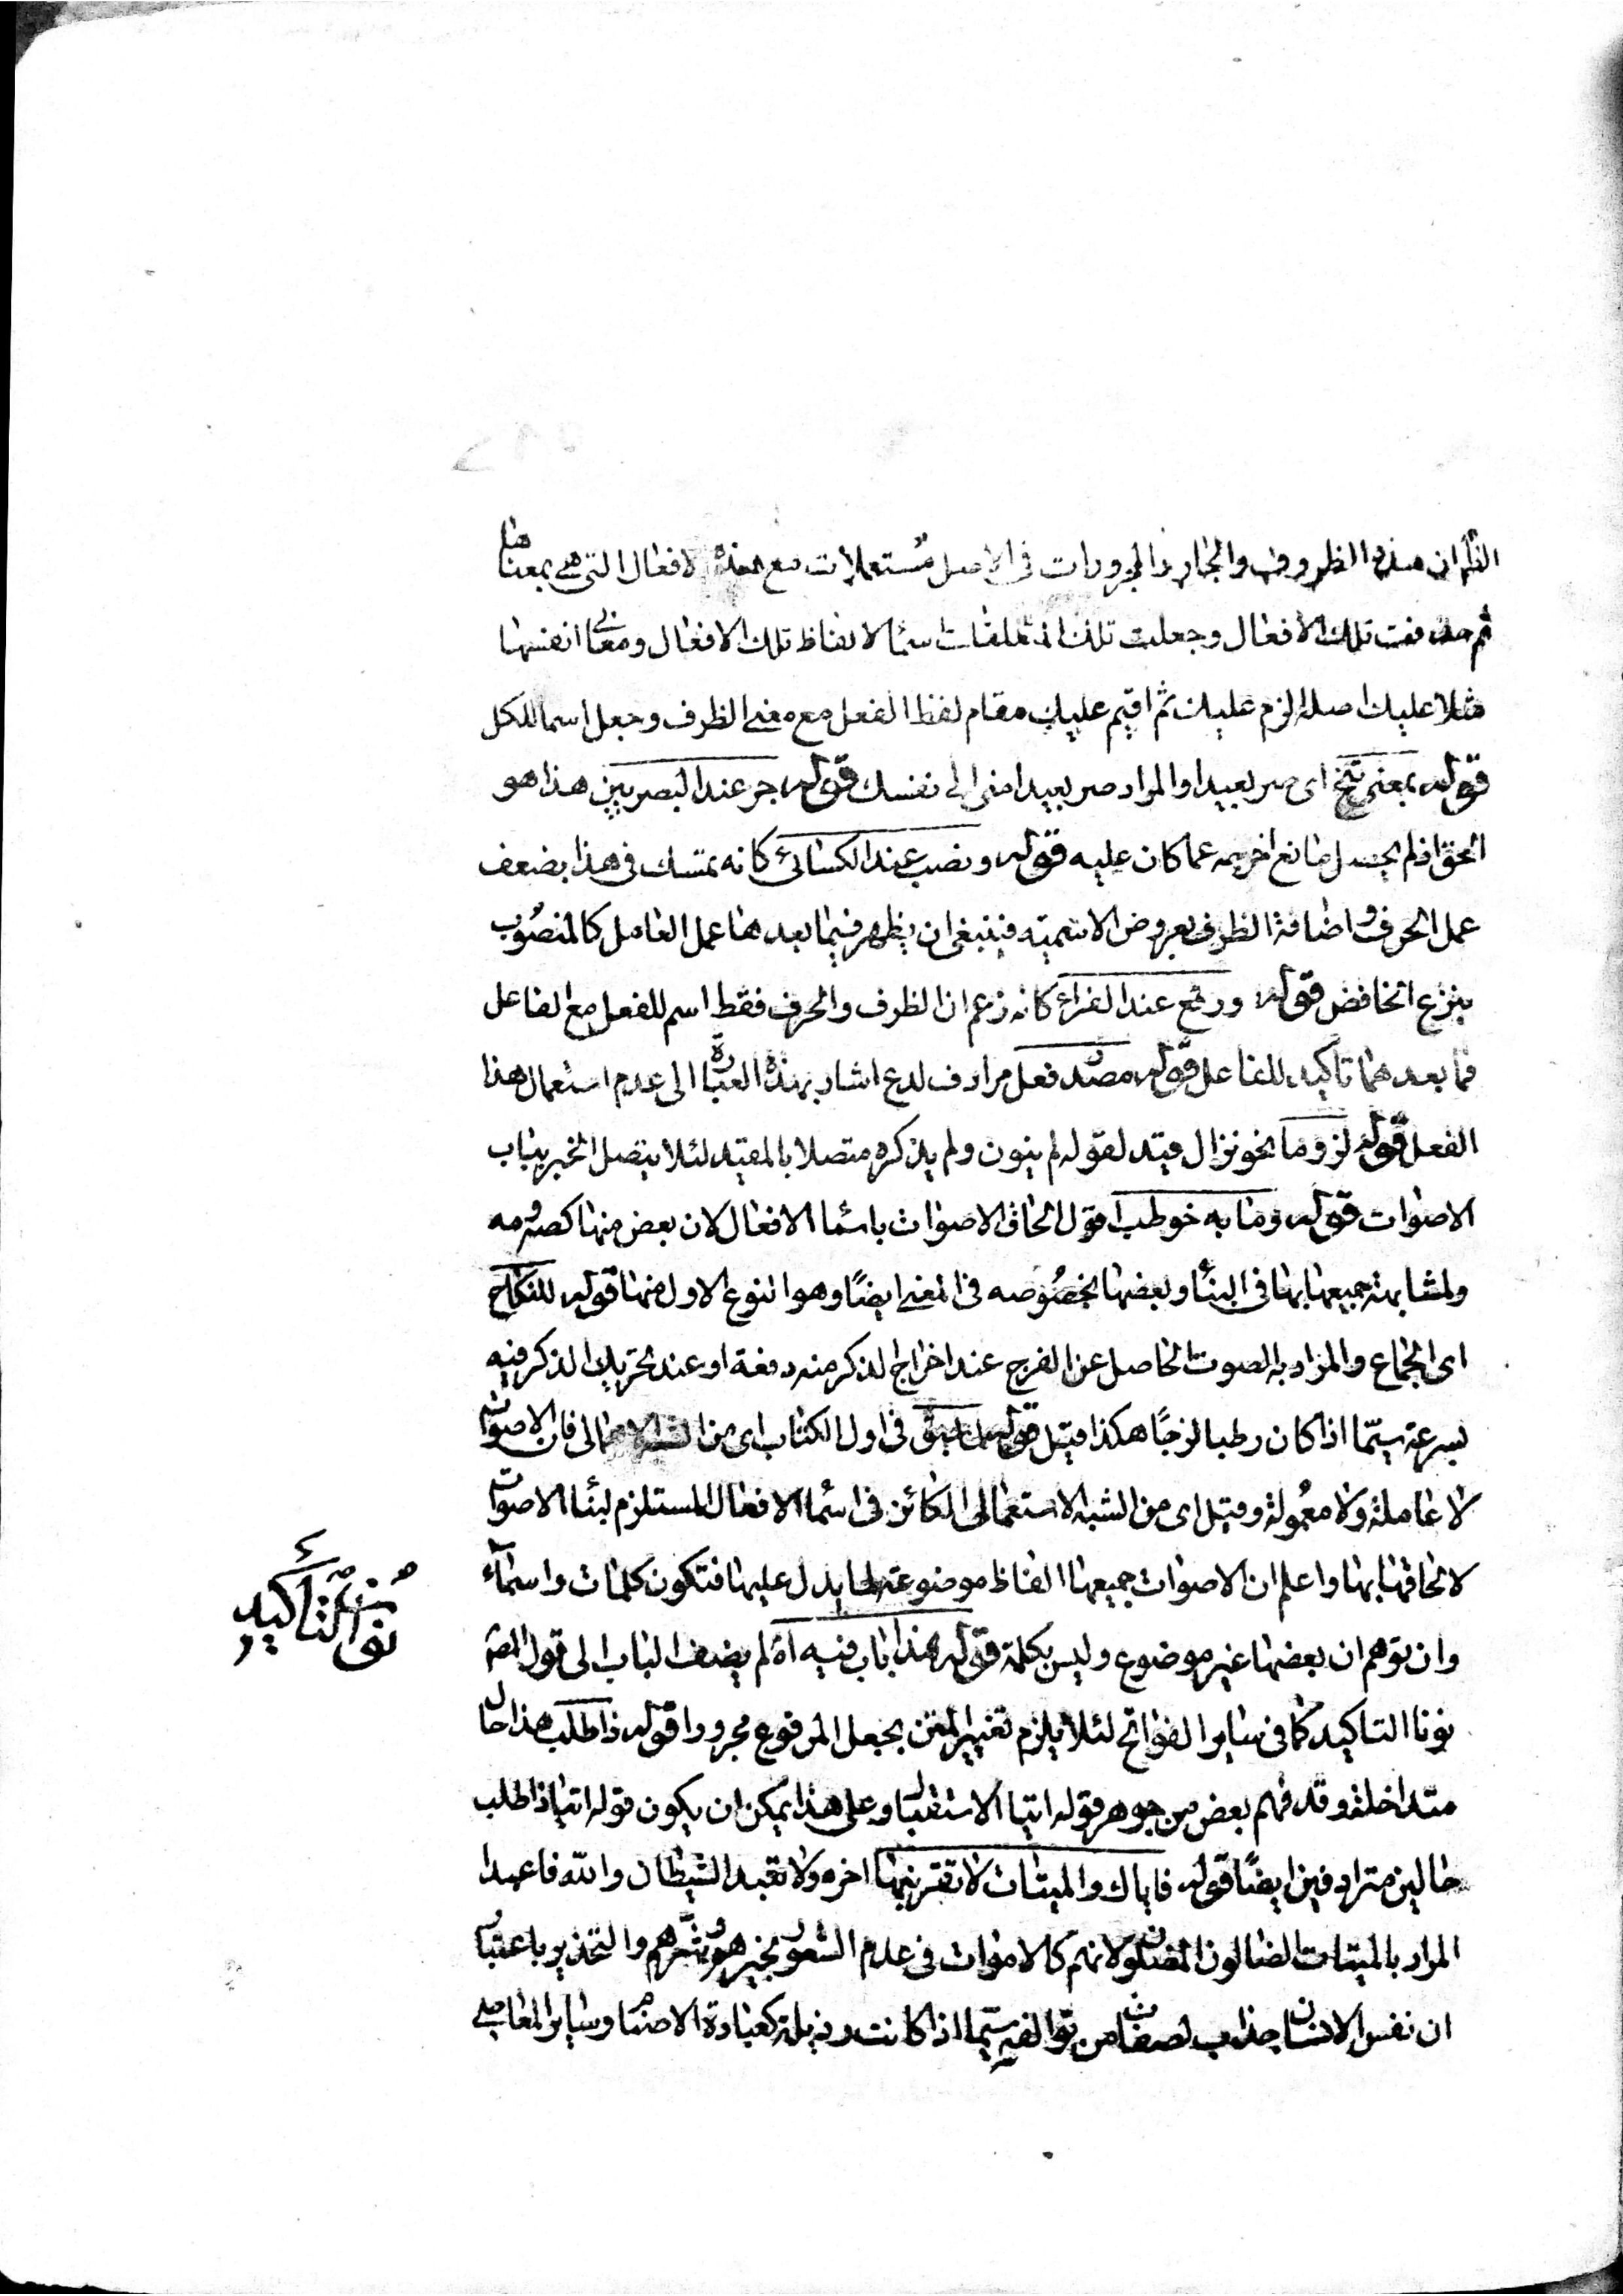 ان هذه الظروف والجار والمجرورات فى الاصل مستعملات مع هذه الافعال التى هى بمعناها
ثم حذفت تلك الافعال وجعلت تلك المتعلقات اسما لالفاظ تلك الافعال ومعانى انفسها
مثلا عليك اصله الزم عليك ثم اقيم عليك مقام لفظ الفعل مع معنى الظرف وجعل اسما للكل
قوله بمعنى تنح اى صر بعيدا والمراد صر بعيدا منى الى نفسك قوله جر عند البصريين هذا هو
الحق اذ لم يحصل مانع اخرجه عما كان عليه قوله ونصب عند الكسائى كانه تمسك فى هذا بضعف
عمل الحرف واضافة الظرف بعروض الاسمية فينبغى ان يظهر فيما بعدهما عمل العامل كالمنصوب
بنزع الخافض قوله ورفع عند الفراء كانه زعم ان الظرف والحرف فقط اسم للفعل مع الفاعل
فما بعدهما تاكيد للفاعل قوله مصدر فعل مرادف لدع اشار بهذه العبارة الى عدم استعمال هذا
الفعل قوله لزوما نحو نزال قيد لقوله لم ينون ولم يذكره متصلا بالمقيد لئلا يتصل الخبر بباب
الاصوات قوله وما به خوطب اقول الحاق الاصوات باسما الافعال لان بعض منها كصه ومه
ولمشابهة جميعها بها فى البنأ وبعضها بخصوصه فى المعنى ايضًا وهو النوع الاول منها قوله للنكاح
اى الجماع والمراد به الصوت الحاصل عن الفرج عند اخراج الذكر منه دفعة او عند تحريك الذكر فيه
بسرعة سيما اذا كان رطبا لزجًا هكذا قيل قوله لما سبق فى اول الكتاب اى من فان الاصوات
لا عاملة ولا معمولة وقيل اى من الشبه الاستعمالى الكائن فى اسما الافعال المستلزم لبنأ الاصوات
لالحاقها بها واعلم ان الاصوات جميعها الفاظ موضوعة لما يدل عليها فتكون كلمات واسمآء
وان توهم ان بعضها غير موضوع وليس بكلمة قوله هذا باب فيه اه لم يضف الباب الى قول المص
نونا التاكيد كما فى ساير الفواتح لئلا يلزم تغيير المتن بجعل المرفوع مجرورا قوله ذا طلب هذا حال
متداخلة وقد فهم بعض من جوهر قوله اتيا الاستقبال وعلى هذا يمكن ان يكون قوله اتيا ذا طلب
حالين مترادفين ايضًا قوله فاياك والميتات لا تقربنها اخره ولا تعبد الشيطان والله فاعبدا
المراد بالميتات الضالون المضلون لانهم كالاموات فى عدم الشعور بخيرهم وشرهم والتحذير باعتبار
ان نفس الانسان جذاب لصفات من توالفه سيما اذا كانت رذيلة كعبادة الاصنام وساير المعاصى
نونا التاكيد